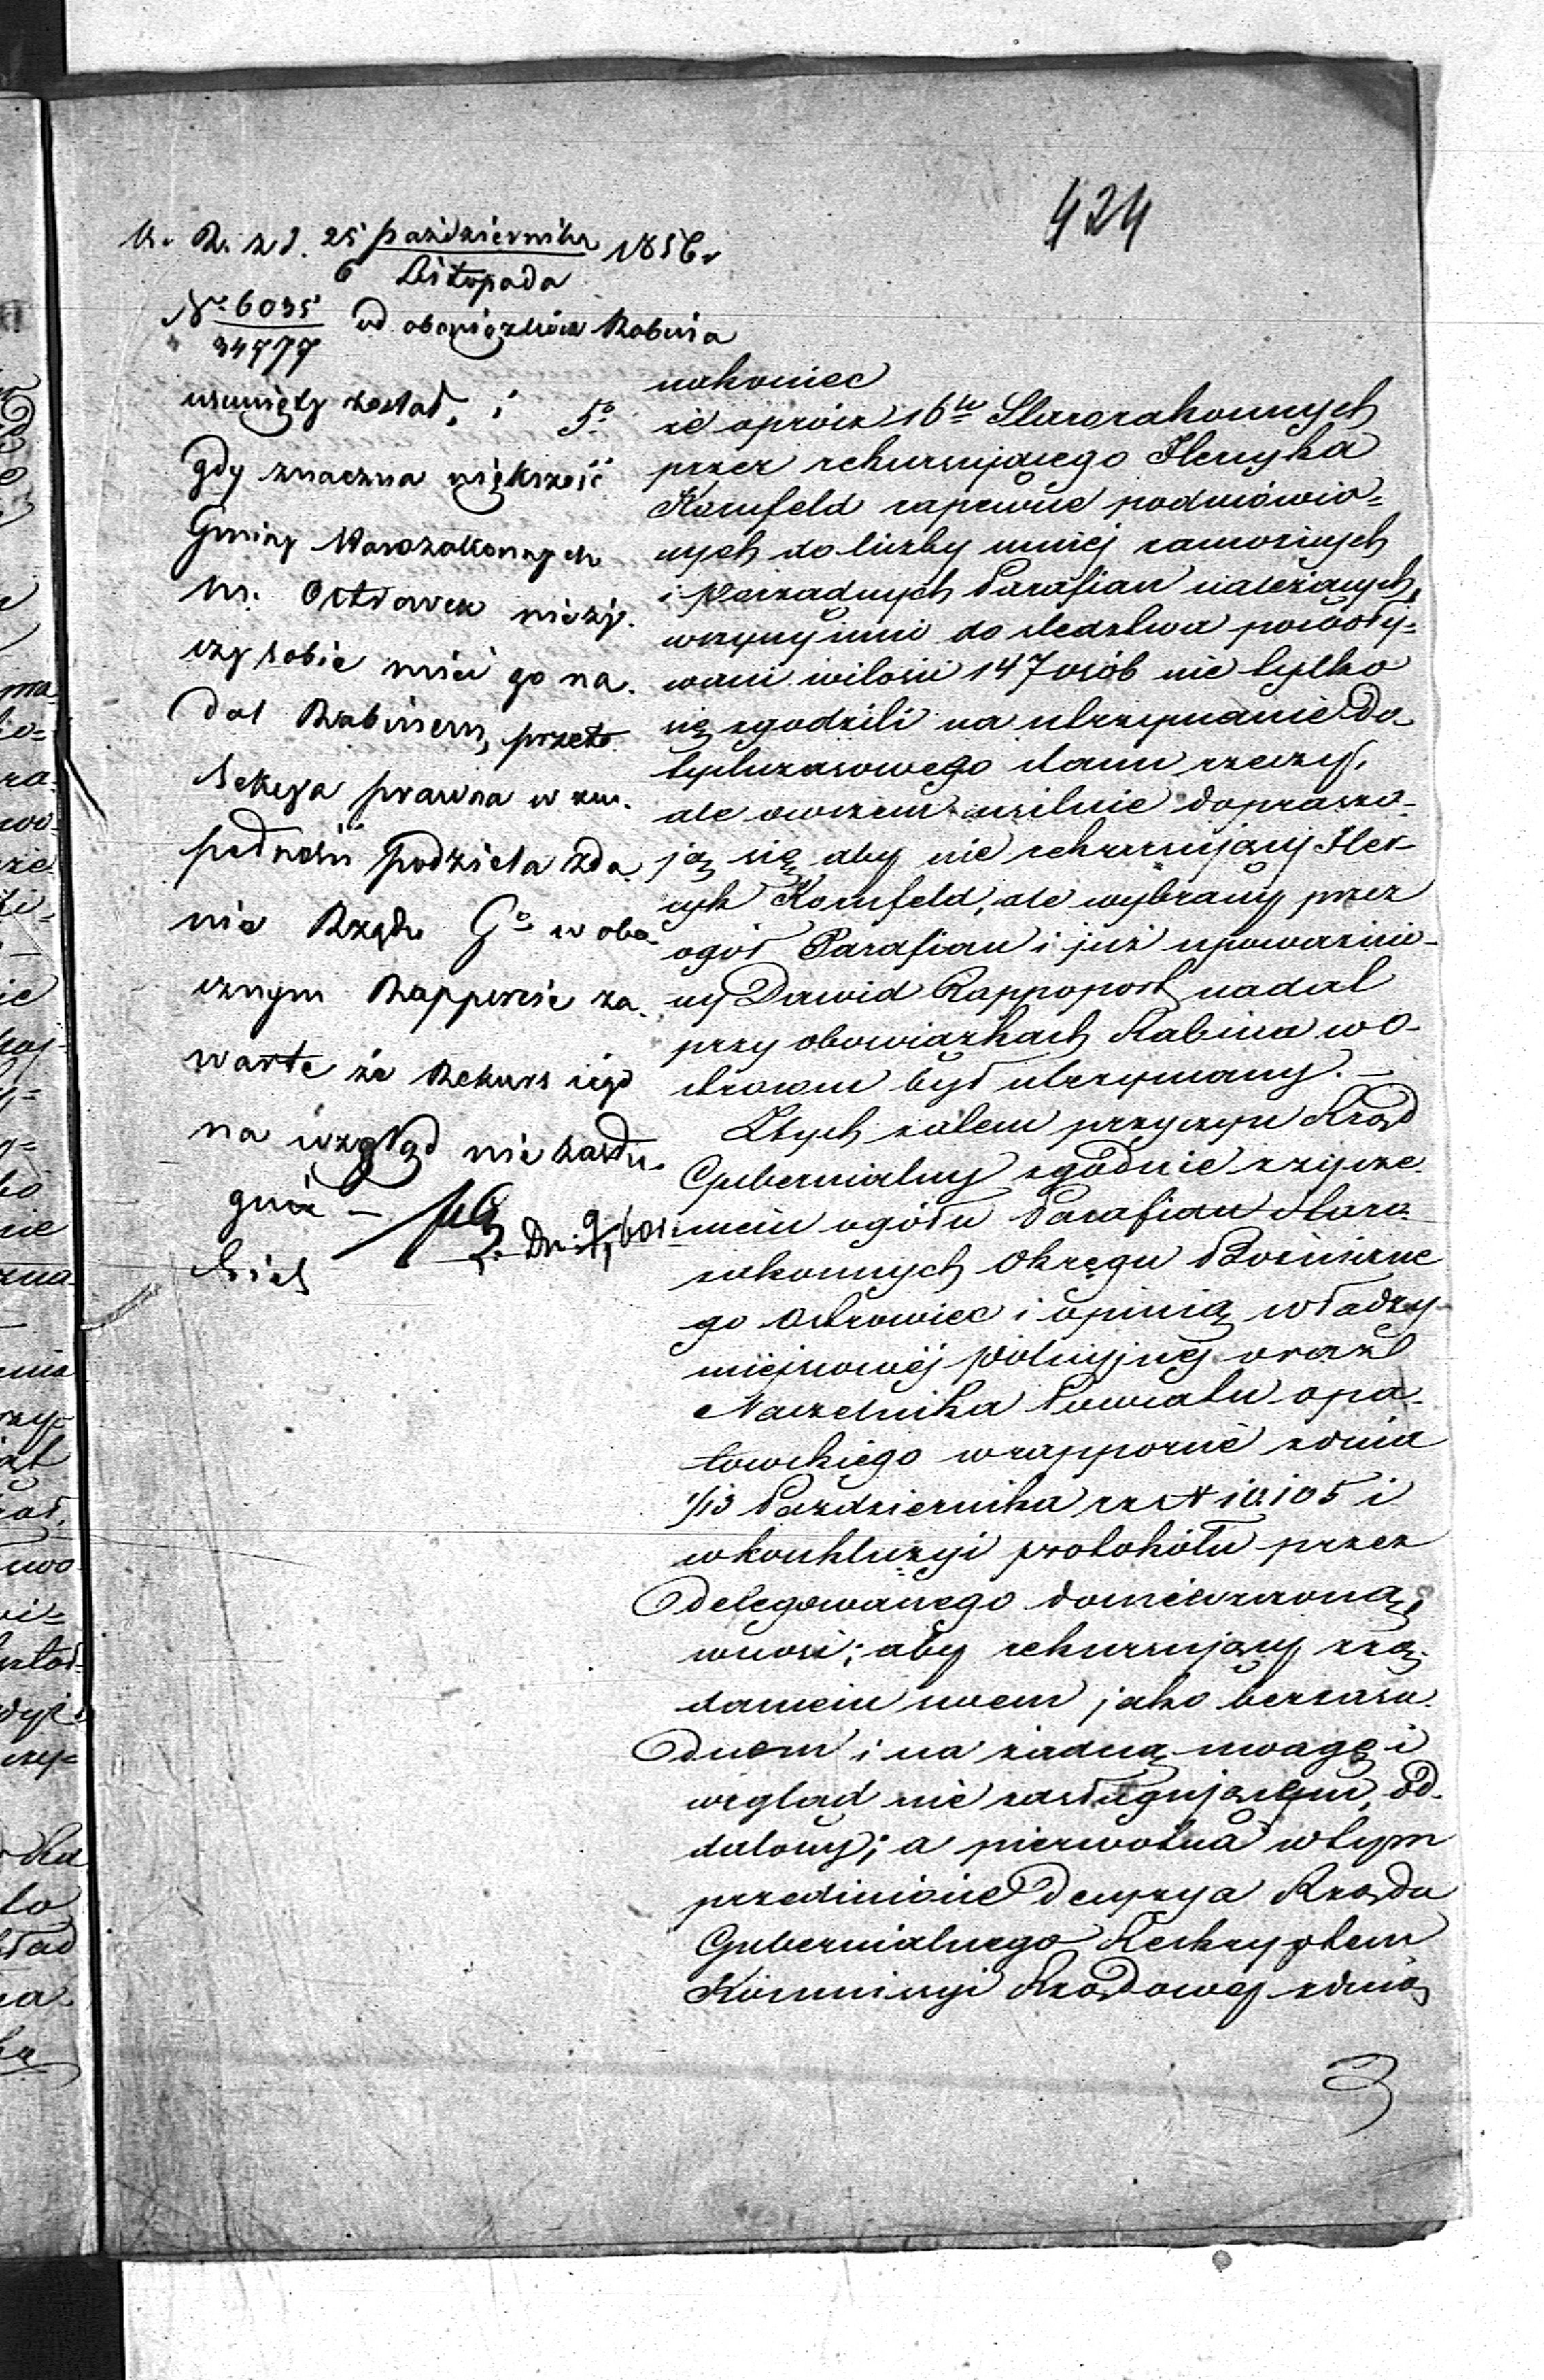 424
K. R. z d. 25 października / 6 Listopada 1856 r
No 6035/34777 od obowiązków Rabina
usunięty został, i
gdy znaczna większość
Gminy Starozakonnych
m. Ostrowca nieży-
czy sobie mieć go na-
dal Rabinem, przeto
Sekcya prawna w zu-
pełności podziela zda-
nie Rządu Go w obo-
cznym Rapporcie za-
warte że Rekurs jego
na wzgląd nie zasłu-
guje –
nakoniec
5o że oprócz 16tu Starozakonnych
przez rekursującego Henryka
Kornfeld zapewne podmówio=
nych do liczby mniej zamożnych
i porządnych Parafian należących,
wszyscy inni do śledztwa powoły=
wani wilości 147 osób nie tylko
się zgodzili na utrzymanie do
tychczasowego stanu rzeczy,
ale owszem usilnie doprasza-
ją się aby nie rekursujący Hen-
ryk Kornfeld, ale wybrany przez
ogół Parafian i już upoważnio-
ny Dawid Rappoport nadal
przy obowiązkach Rabina w O-
strowcu był utrzymany. –
Ztych zatem przyczyn Rząd
Gubernialny zgodnie zżycze-
niem ogółu Parafian Staro-
zakonnych Okręgu Bożniczne
go Ostrowiec i opinią władzy
miejscowéj policyjnéj oraz
Naczelnika Powiatu Opa-
towskiego wrapporcie zdnia
1/13 Października r z N 10105 i
wkonkluzyi protokółu przez
Delegowanego domieszczoną,
wnosi; aby rekursujący zżą-
daniem swem jako bezzasa-
dnem i na żadną uwagę i
wzgląd nie zasługującem, od-
dalony; a pierwotna wtym
przedmiocie Decyzya Rządu
Gubernialnego Reskryptem
Kommissyi Rządowej zdnia
3